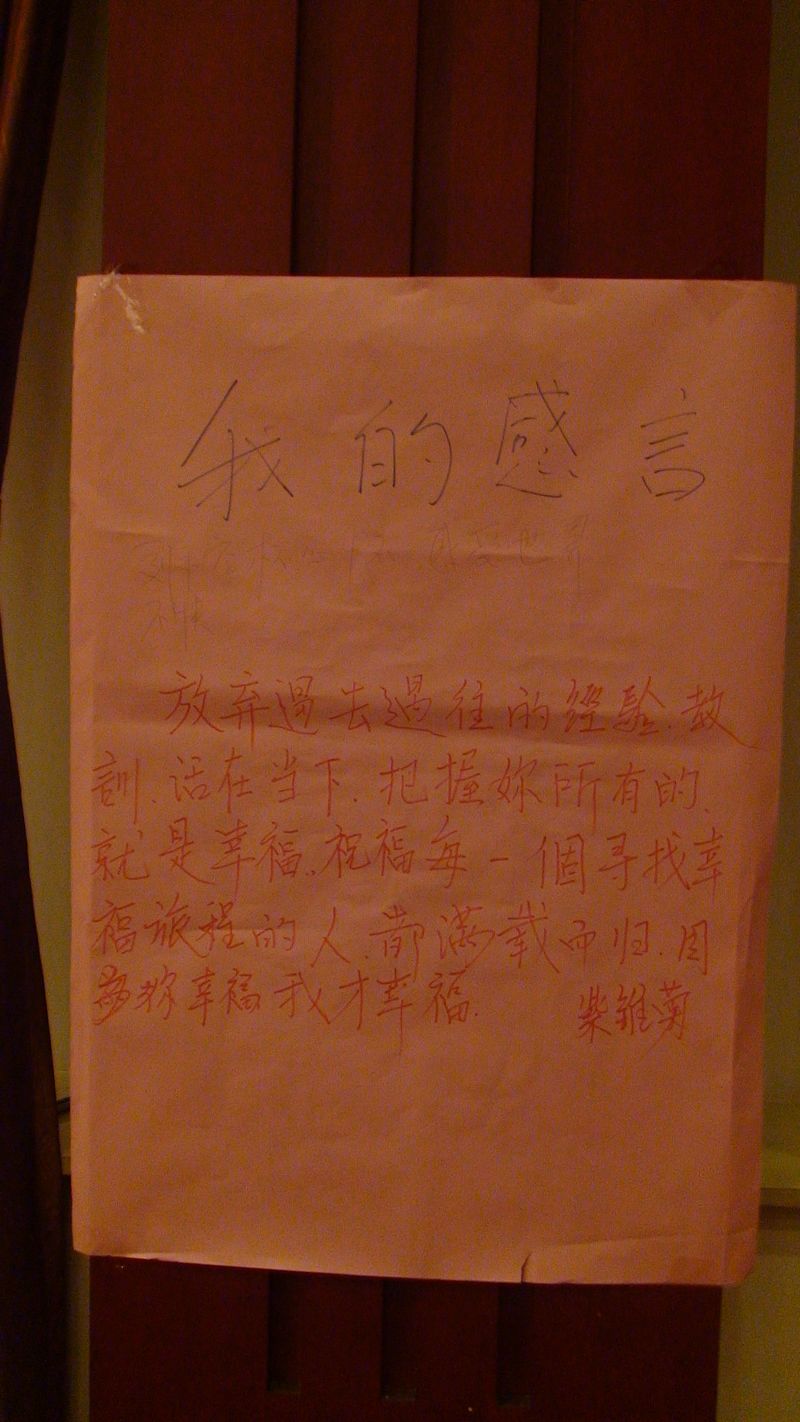 我的感言
放弃過去過往的经验.教
訓.活在当下.把握妳所有的、
就是幸福.祝福每一個寻找幸
福旅程的人.都满载而归.因
為妳幸福我才幸福.
柴雏菊